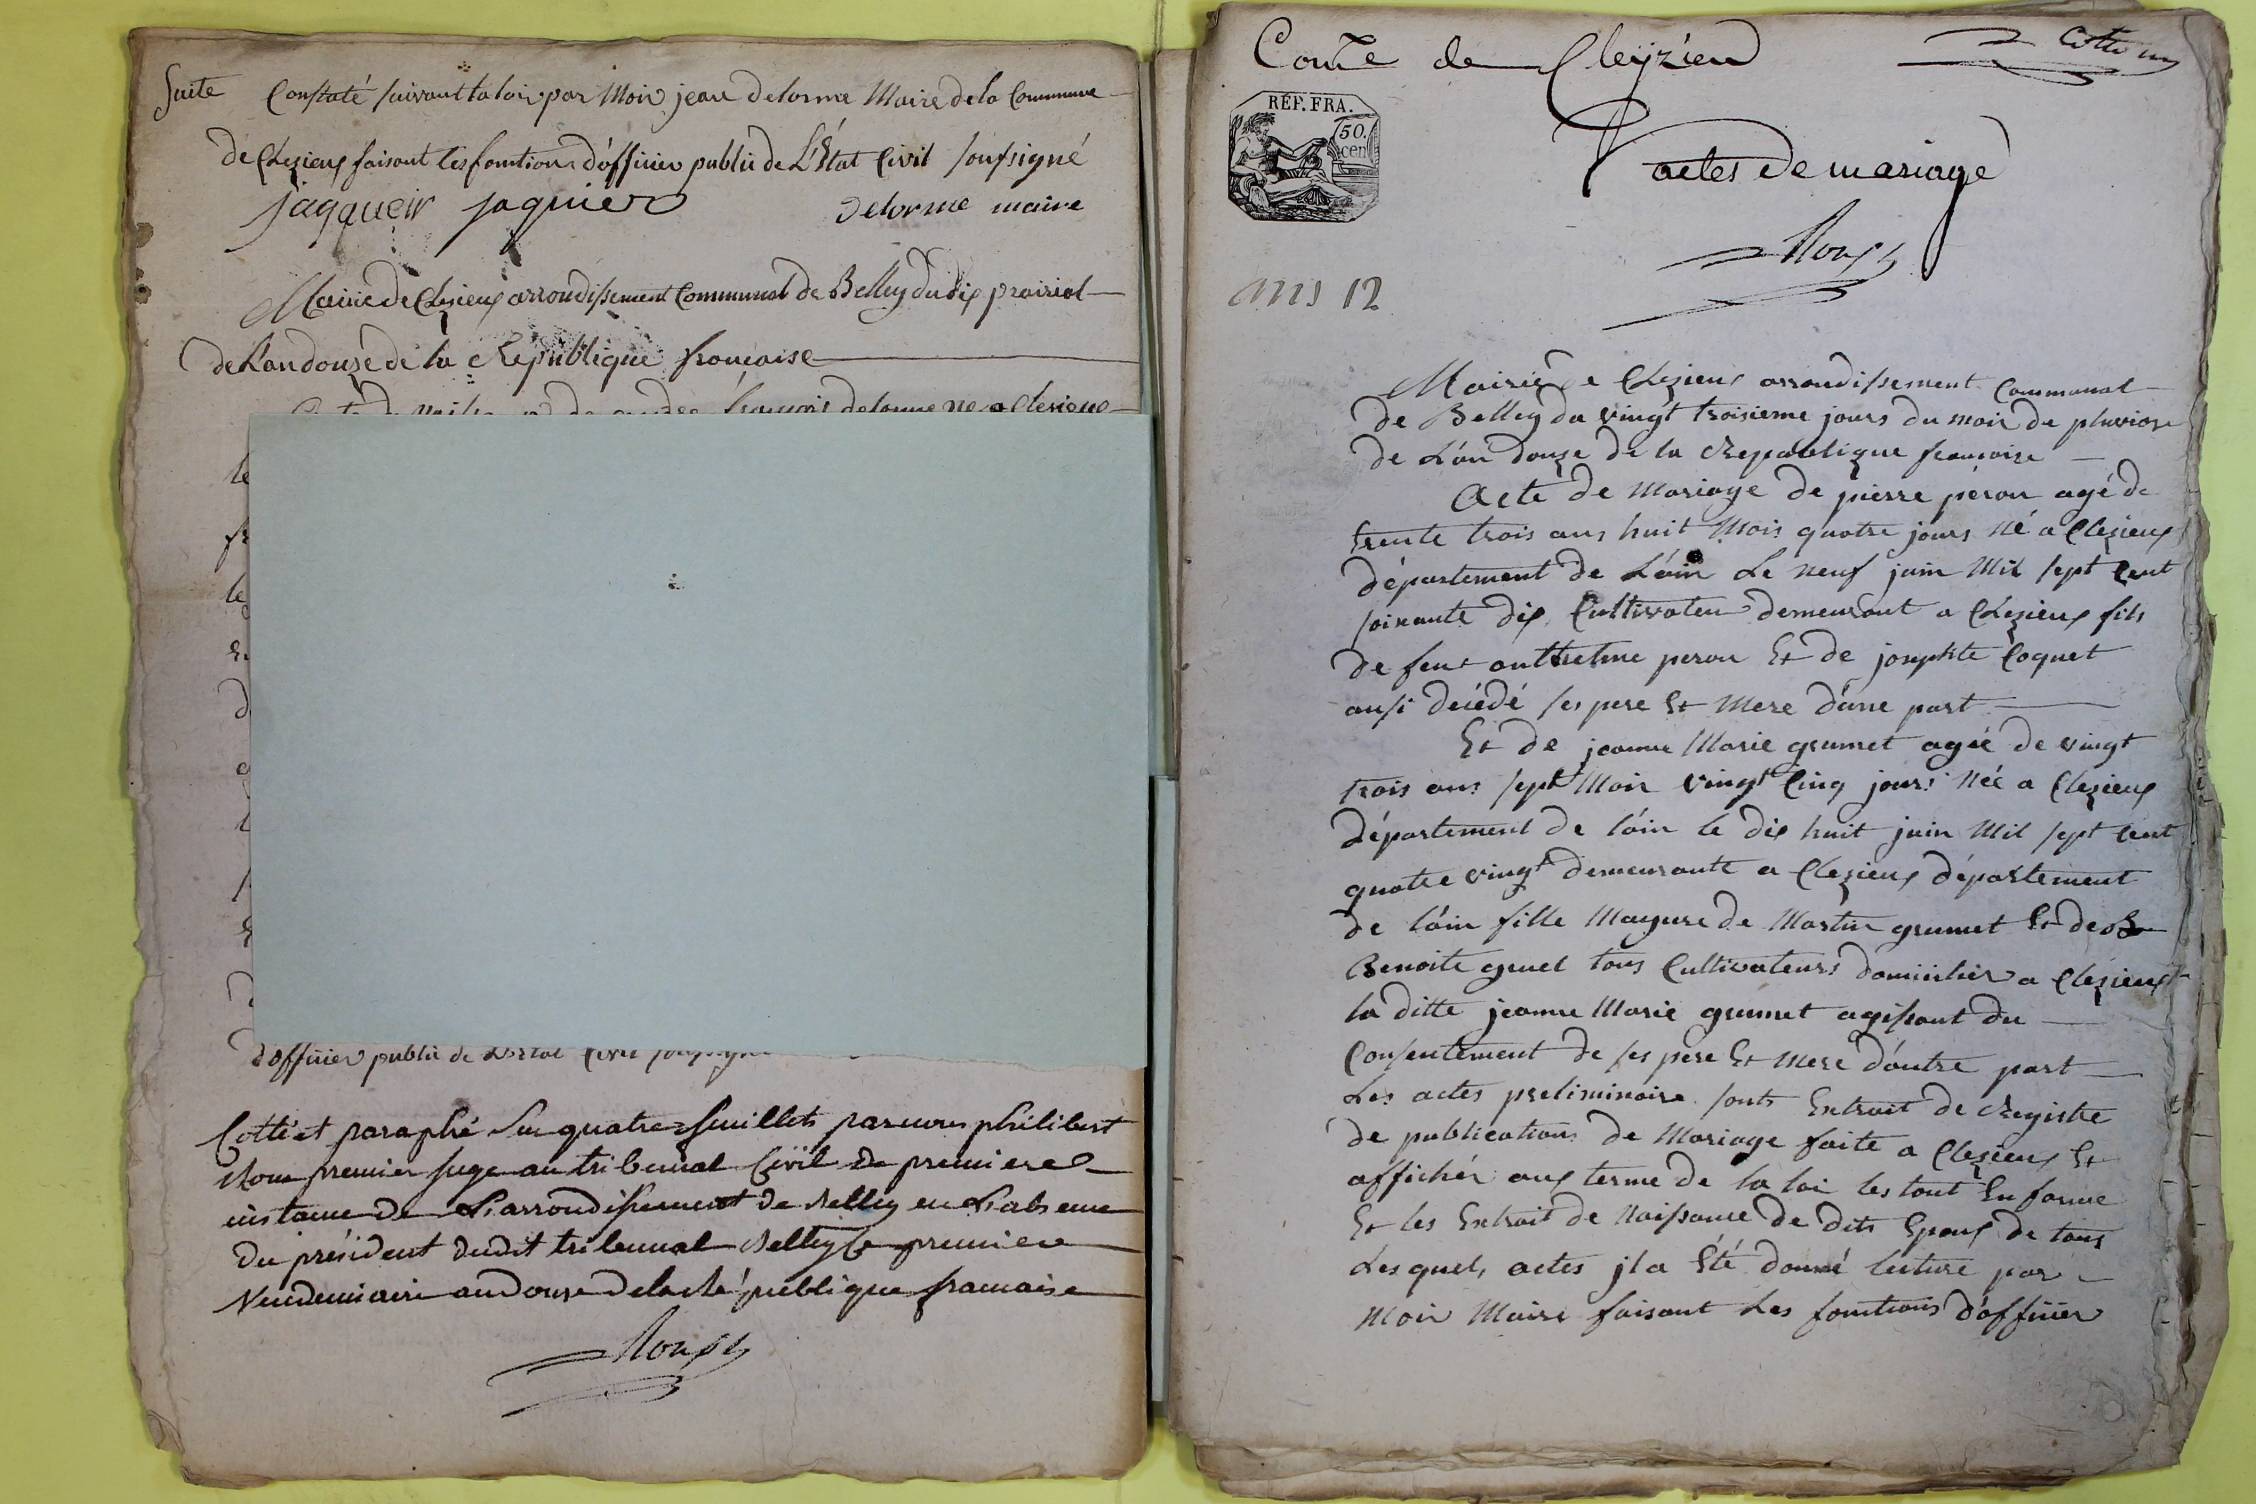 Suite Constaté suivant la loi par Moir jean delorme Maire de la Commune
de Clezieux faisant les fonctions d'officier public de L'État Civil soussigné
jaqqueir jaquier delorme maire
Mairie de Clezieux arrondissement Communal de Belley du dix prairial
de L'an douze de la République francaise
françois delorme né a Clezieux
d'officier public de L'état Civil
Cotté et paraphé sur quatre feuillets par nous philibert
Roux premier juge au tribunal Civil de premiere
instance de L'arrondissement de Belley en L'absence
du président dudit tribunal Belley le premier
Vendemiaire an douze de la République francaise
Roux
Comne de Cleyzieu Cotte un
RÉP. FRA.
50.
cen
actes de mariage
Roux
ans 12
Mairie de Clezieux arrondissement Communal
de Belley du vingt troisieme jours du mois de pluviose
de L'an douze de la Republique francoise
Acte de Mariage de pierre péron agé de
trente trois ans huit Mois quatre jours né a Clezieux
département de L'ain Le neuf juin Mil sept Cent
soixante dix Cultivateur demeurant a Clezieux fils
de feu anthelme peron Et de josephte Coquet
aussi décédé ses pere Et Mere d'une part
Et de jeanne Marie grumet agée de vingt
trois ans sept Mois vingt Cinq jours née a Clezieux
département de l'ain le dix huit juin Mil sept Cent
quatre vingt demeurante a Clezieux département
de l'ain fille Mayure de Martin grumet Et de
Benoite gruel tous Cultivateurs domicilier a Clezieux
la ditte jeanne Marie grumet agissant du
Consentement de ses pere Et Mere d'autre part
Les actes preliminaire sonts Extrait de Registre
de publications de Mariage faite a Clezieux Et
affichér aux terme de la loi les tout En forme
Et les Extrait de Naissance de dits Epoux de tous
Lesquels actes jl a Été donné lecture par
Moir Maire faisant Les fonctions d'officier